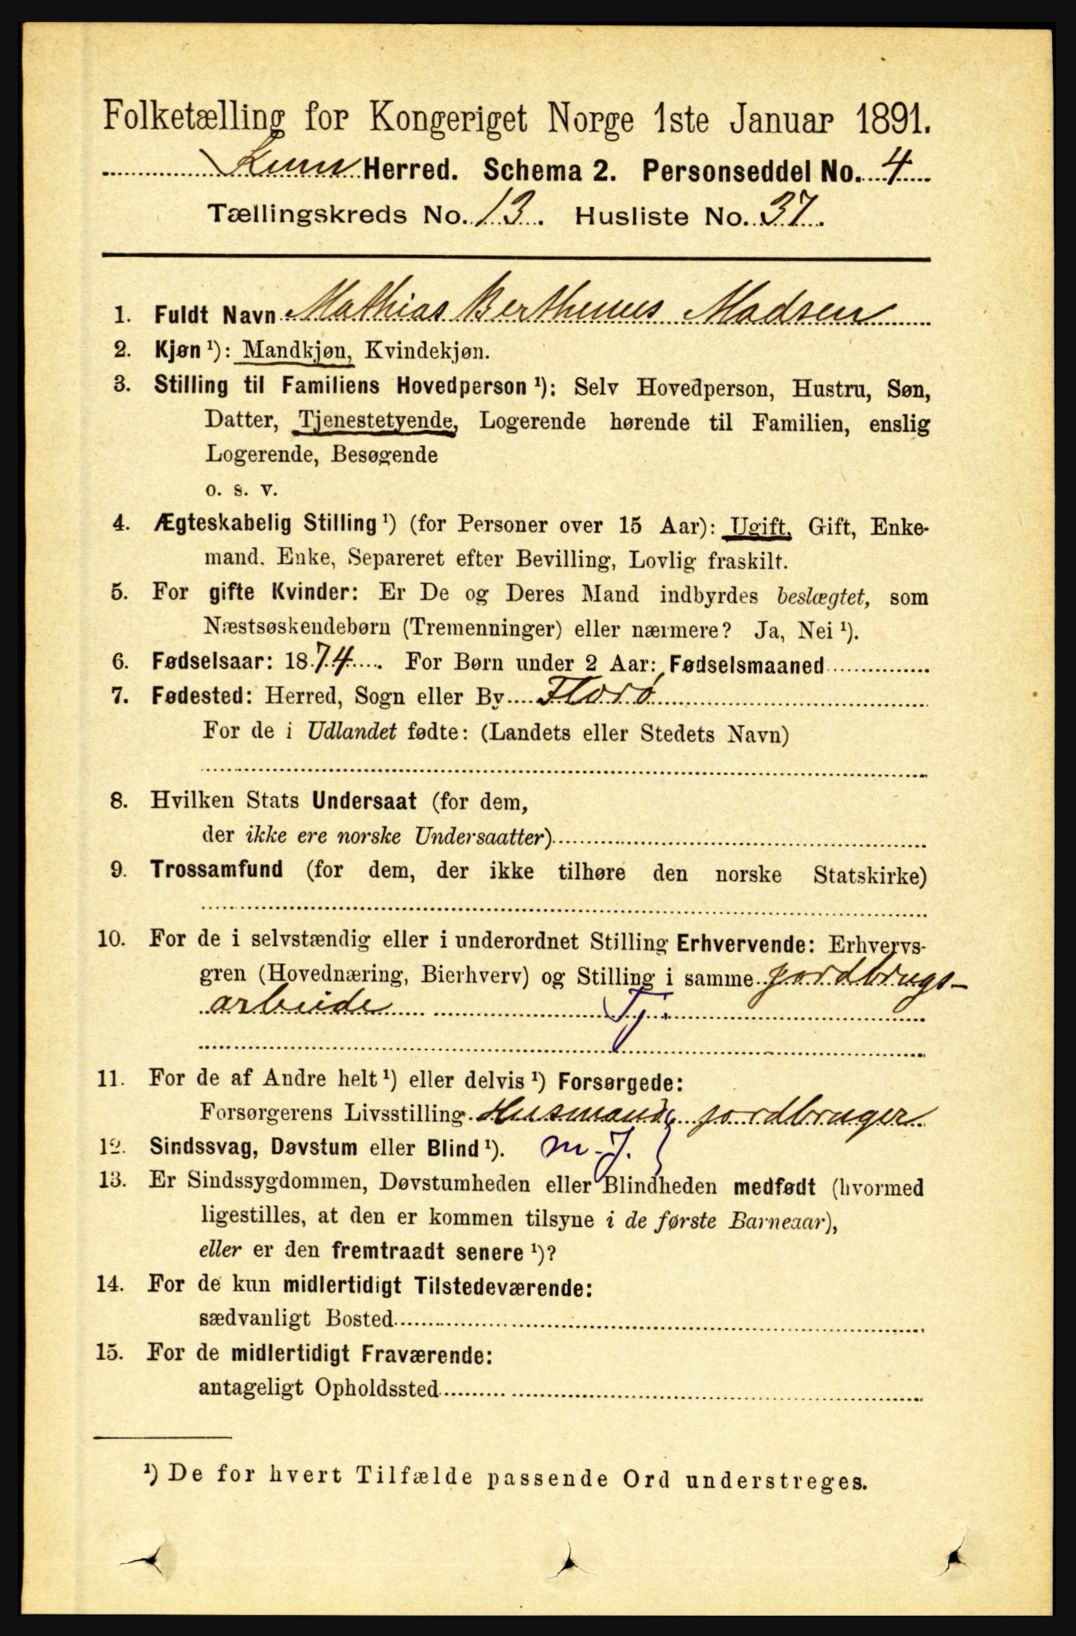 Folketælling for Kongeriget Norge 1ste Januar 1891.
Kinn Herred. Schema 2. Personseddel No. 4
Tællingskreds No. 13. Husliste No. 37.
1. Fuldt Navn Mathias Berthinus Madsen
2. Kjøn ¹): Mandkjøn, Kvindekjøn.
3. Stilling til Familiens Hovedperson ¹): Selv Hovedperson, Hustru, Søn,
Datter, Tjenestetyende, Logerende hørende til Familien, enslig
Logerende, Besøgende
o. s. v.
4. Ægteskabelig Stilling ¹) (for Personer over 15 Aar): Ugift, Gift, Enke-
mand, Enke, Separeret efter Bevilling, Lovlig fraskilt.
5. For gifte Kvinder: Er De og Deres Mand indbyrdes beslægtet, som
Næstsøskendebørn (Tremenninger) eller nærmere? Ja, Nei ¹).
6. Fødselsaar: 1874. For Børn under 2 Aar: Fødselsmaaned
7. Fødested: Herred, Sogn eller By Florø
For de i Udlandet fødte: (Landets eller Stedets Navn)
8. Hvilken Stats Undersaat (for dem,
der ikke ere norske Undersaatter)
9. Trossamfund (for dem, der ikke tilhøre den norske Statskirke)
10. For de i selvstændig eller i underordnet Stilling Erhvervende: Erhvervs-
gren (Hovednæring, Bierhverv) og Stilling i samme jordbrugs-
arbeide Tj.
11. For de af Andre helt ¹) eller delvis ¹) Forsørgede:
Forsørgerens Livsstilling Husmand, jordbruger
12. Sindssvag, Døvstum eller Blind ¹). m. J.
13. Er Sindssygdommen, Døvstumheden eller Blindheden medfødt (hvormed
ligestilles, at den er kommen tilsyne i de første Barneaar),
eller er den fremtraadt senere ¹)?
14. For de kun midlertidigt Tilstedeværende:
sædvanligt Bosted
15. For de midlertidigt Fraværende:
antageligt Opholdssted
¹) De for hvert Tilfælde passende Ord understreges.